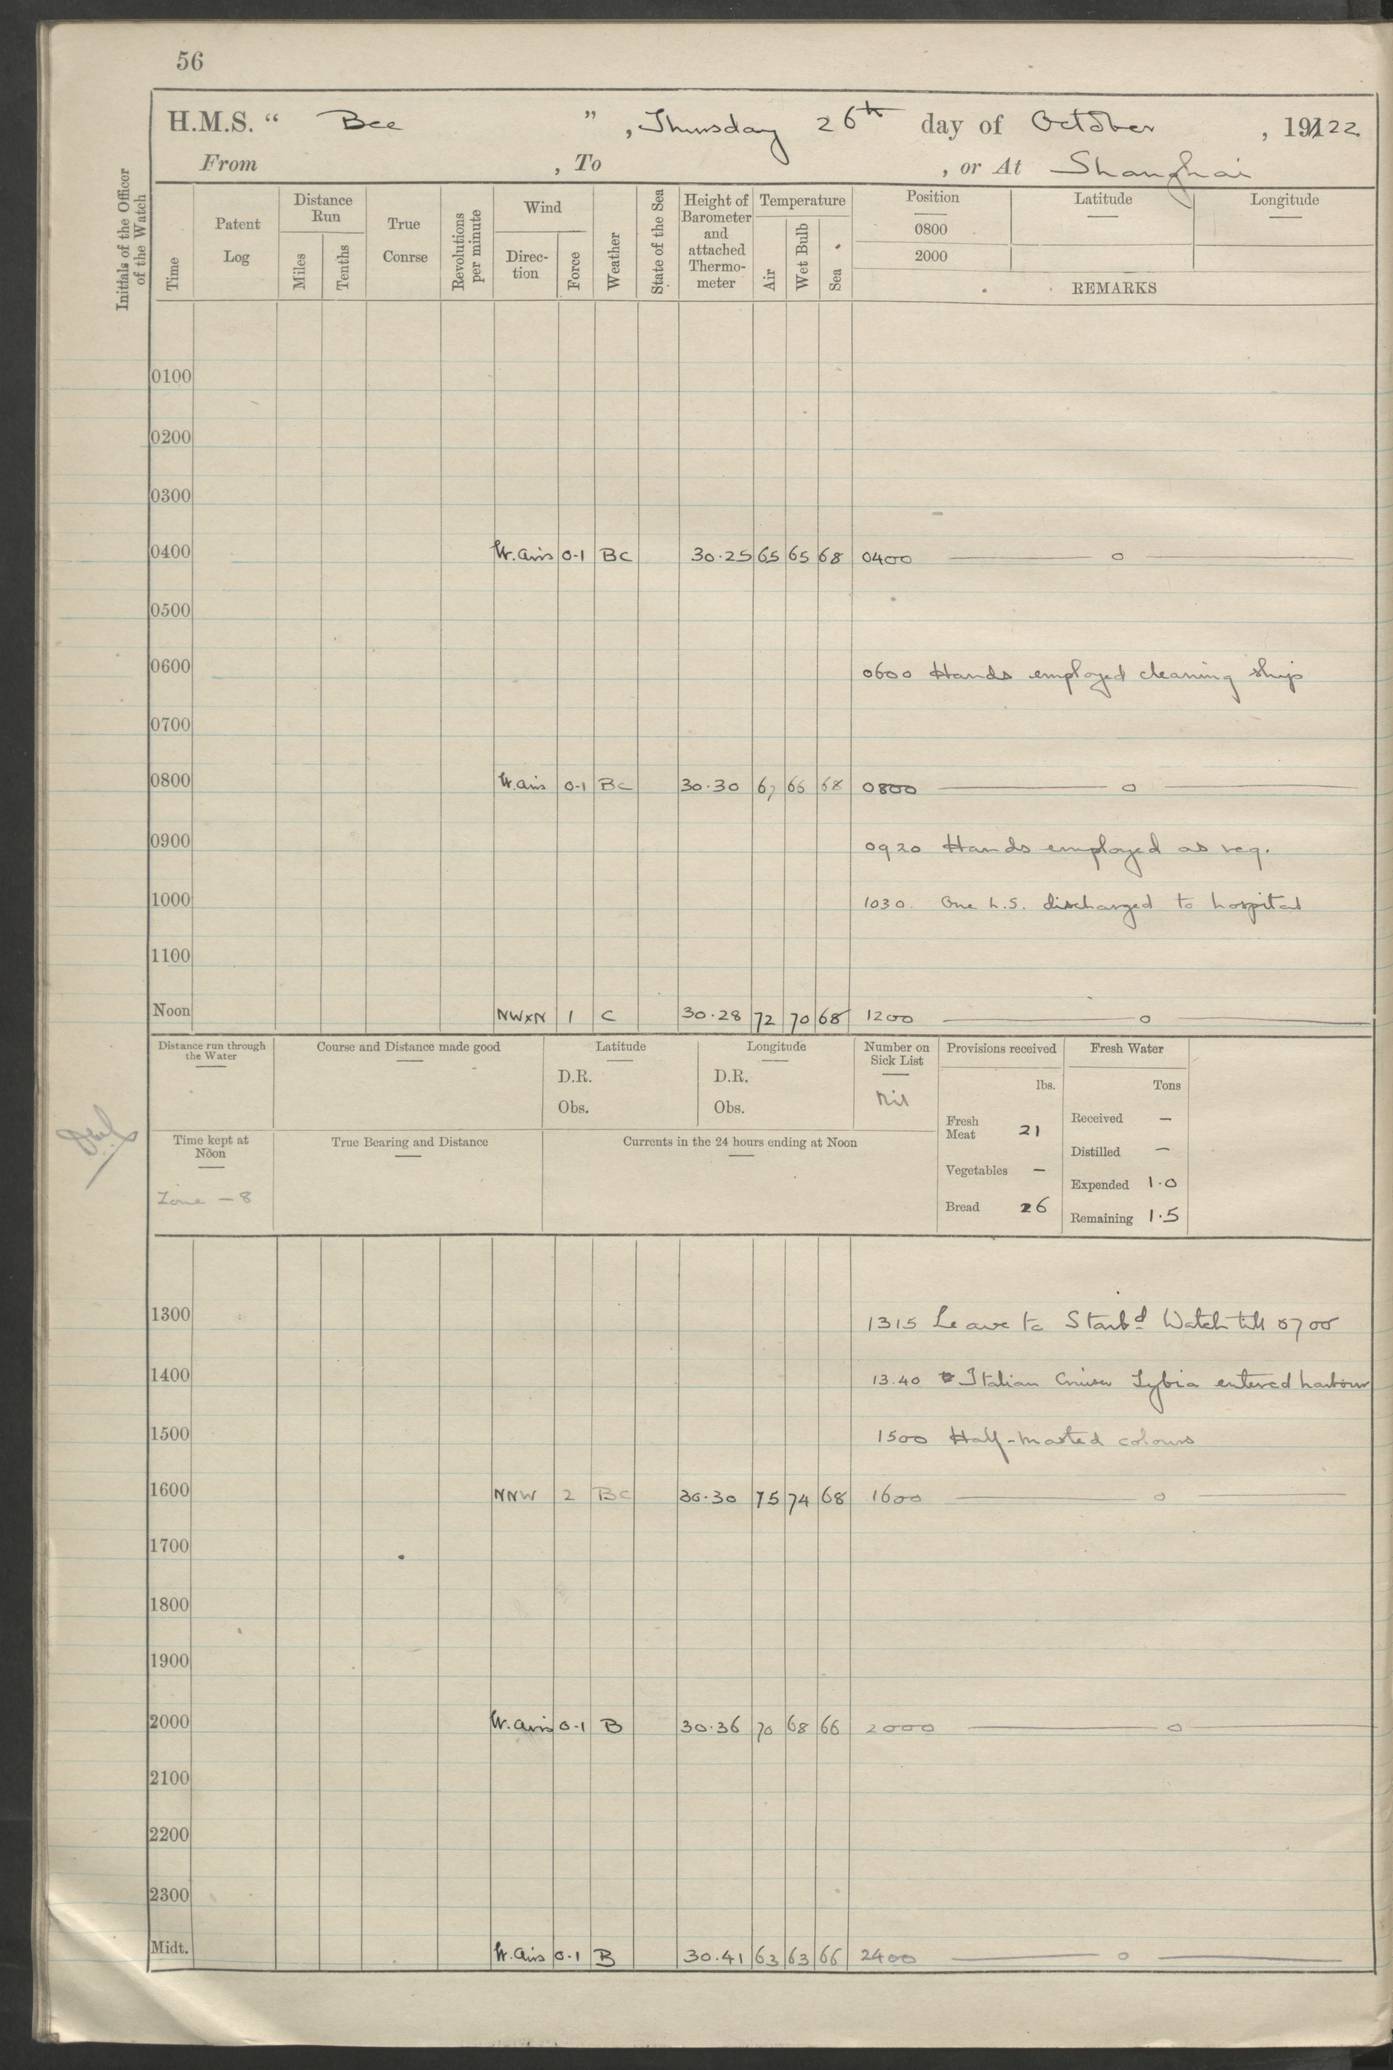 56
H.M.S. “ Bee ” , Thursday 26th day of October , 19122
From , To , or At Shanghai
Initials of the Officer of the Watch
Time
Patent Log
Distance Run
Miles
Tenths
True Course
Revolutions per minute
Wind
Direc-tion
Force
Weather
State of the Sea
Height of Barometer and attached Thermo-meter
Temperature
Air
Wet Bulb
Sea
Position
0800
2000
Latitude
Longitude
REMARKS
0100
0200
0300
0400 W. airs 0-1 BC 30.25 65 65 68 0400 — o —
0500
0600 0600 Hands employed cleaning ship
0700
0800 W. airs 0-1 BC 30.30 67 66 68 0800 — o —
0900 0920 Hands employed as req.
1000 1030. One L.S. discharged to hospital
1100
Noon NWxN 1 C 30.28 72 70 68 1200 — o —
Distance run through the Water
Course and Distance made good
Latitude
D.R.
Obs.
Longitude
D.R.
Obs.
Number on Sick List
Nil
Provisions received
lbs.
Fresh Meat 21
Vegetables –
Bread 26
Fresh Water
Tons
Received –
Distilled –
Expended 1.0
Remaining 1.5
Time kept at Noon
Zone – 8
True Bearing and Distance
Currents in the 24 hours ending at Noon
1300 1315 Leave to Starbd Watch till 0700
1400 13.40 Italian Cruiser Lybia entered harbour
1500 1500 Half-masted colours
1600 NNW 2 BC 30.30 75 74 68 1600 — o —
1700
1800
1900
2000 W. airs 0-1 B 30.36 70 68 66 2000 — o —
2100
2200
2300
Midt. W. airs 0-1 B 30.41 63 63 66 2400 — o —